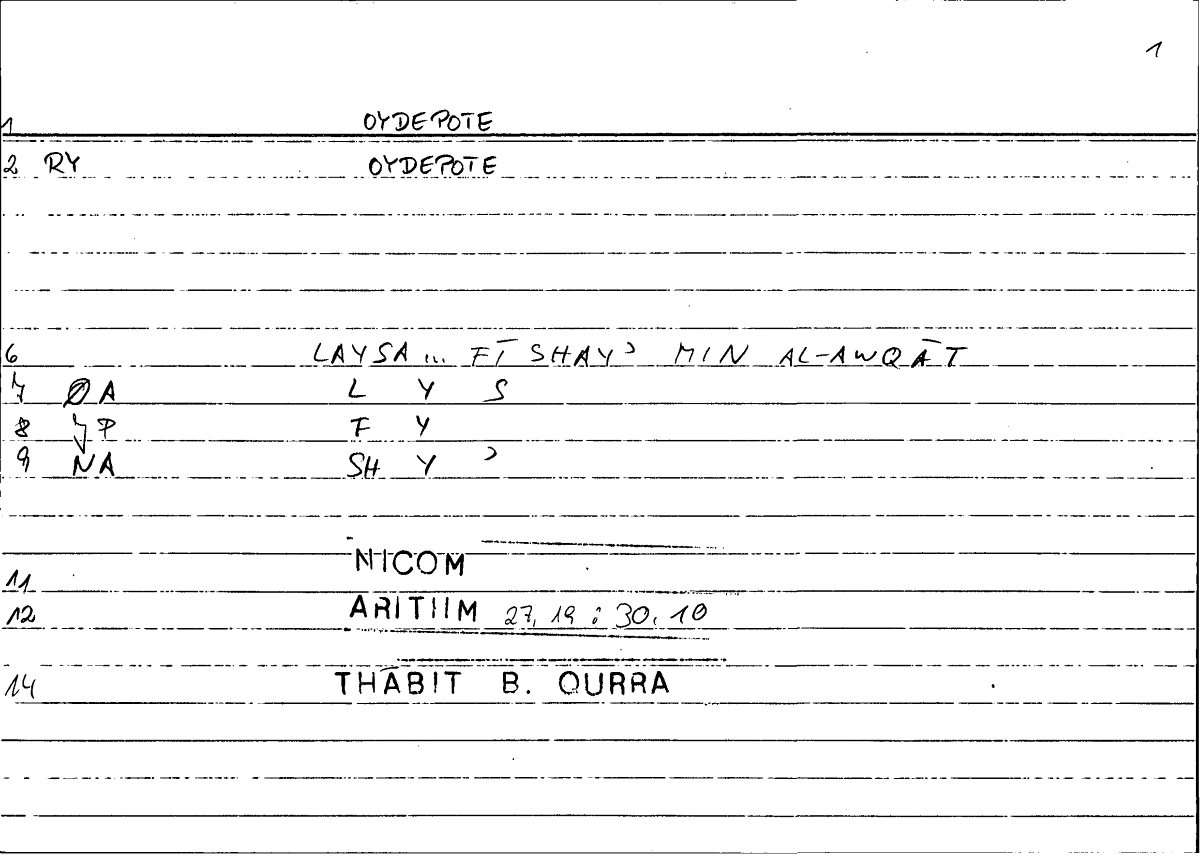 1
1 OYDEPOTE
2 RY OYDEPOTE
6 LAYSA ... FĪ SHAYʾ MIN AL-AWQĀT
7 ØA L Y S
8 F Y
9 NA SH Y ʾ
11 NICOM
12 ARITIIM 27,19 : 30,10
14 THĀBIT B. QURRA